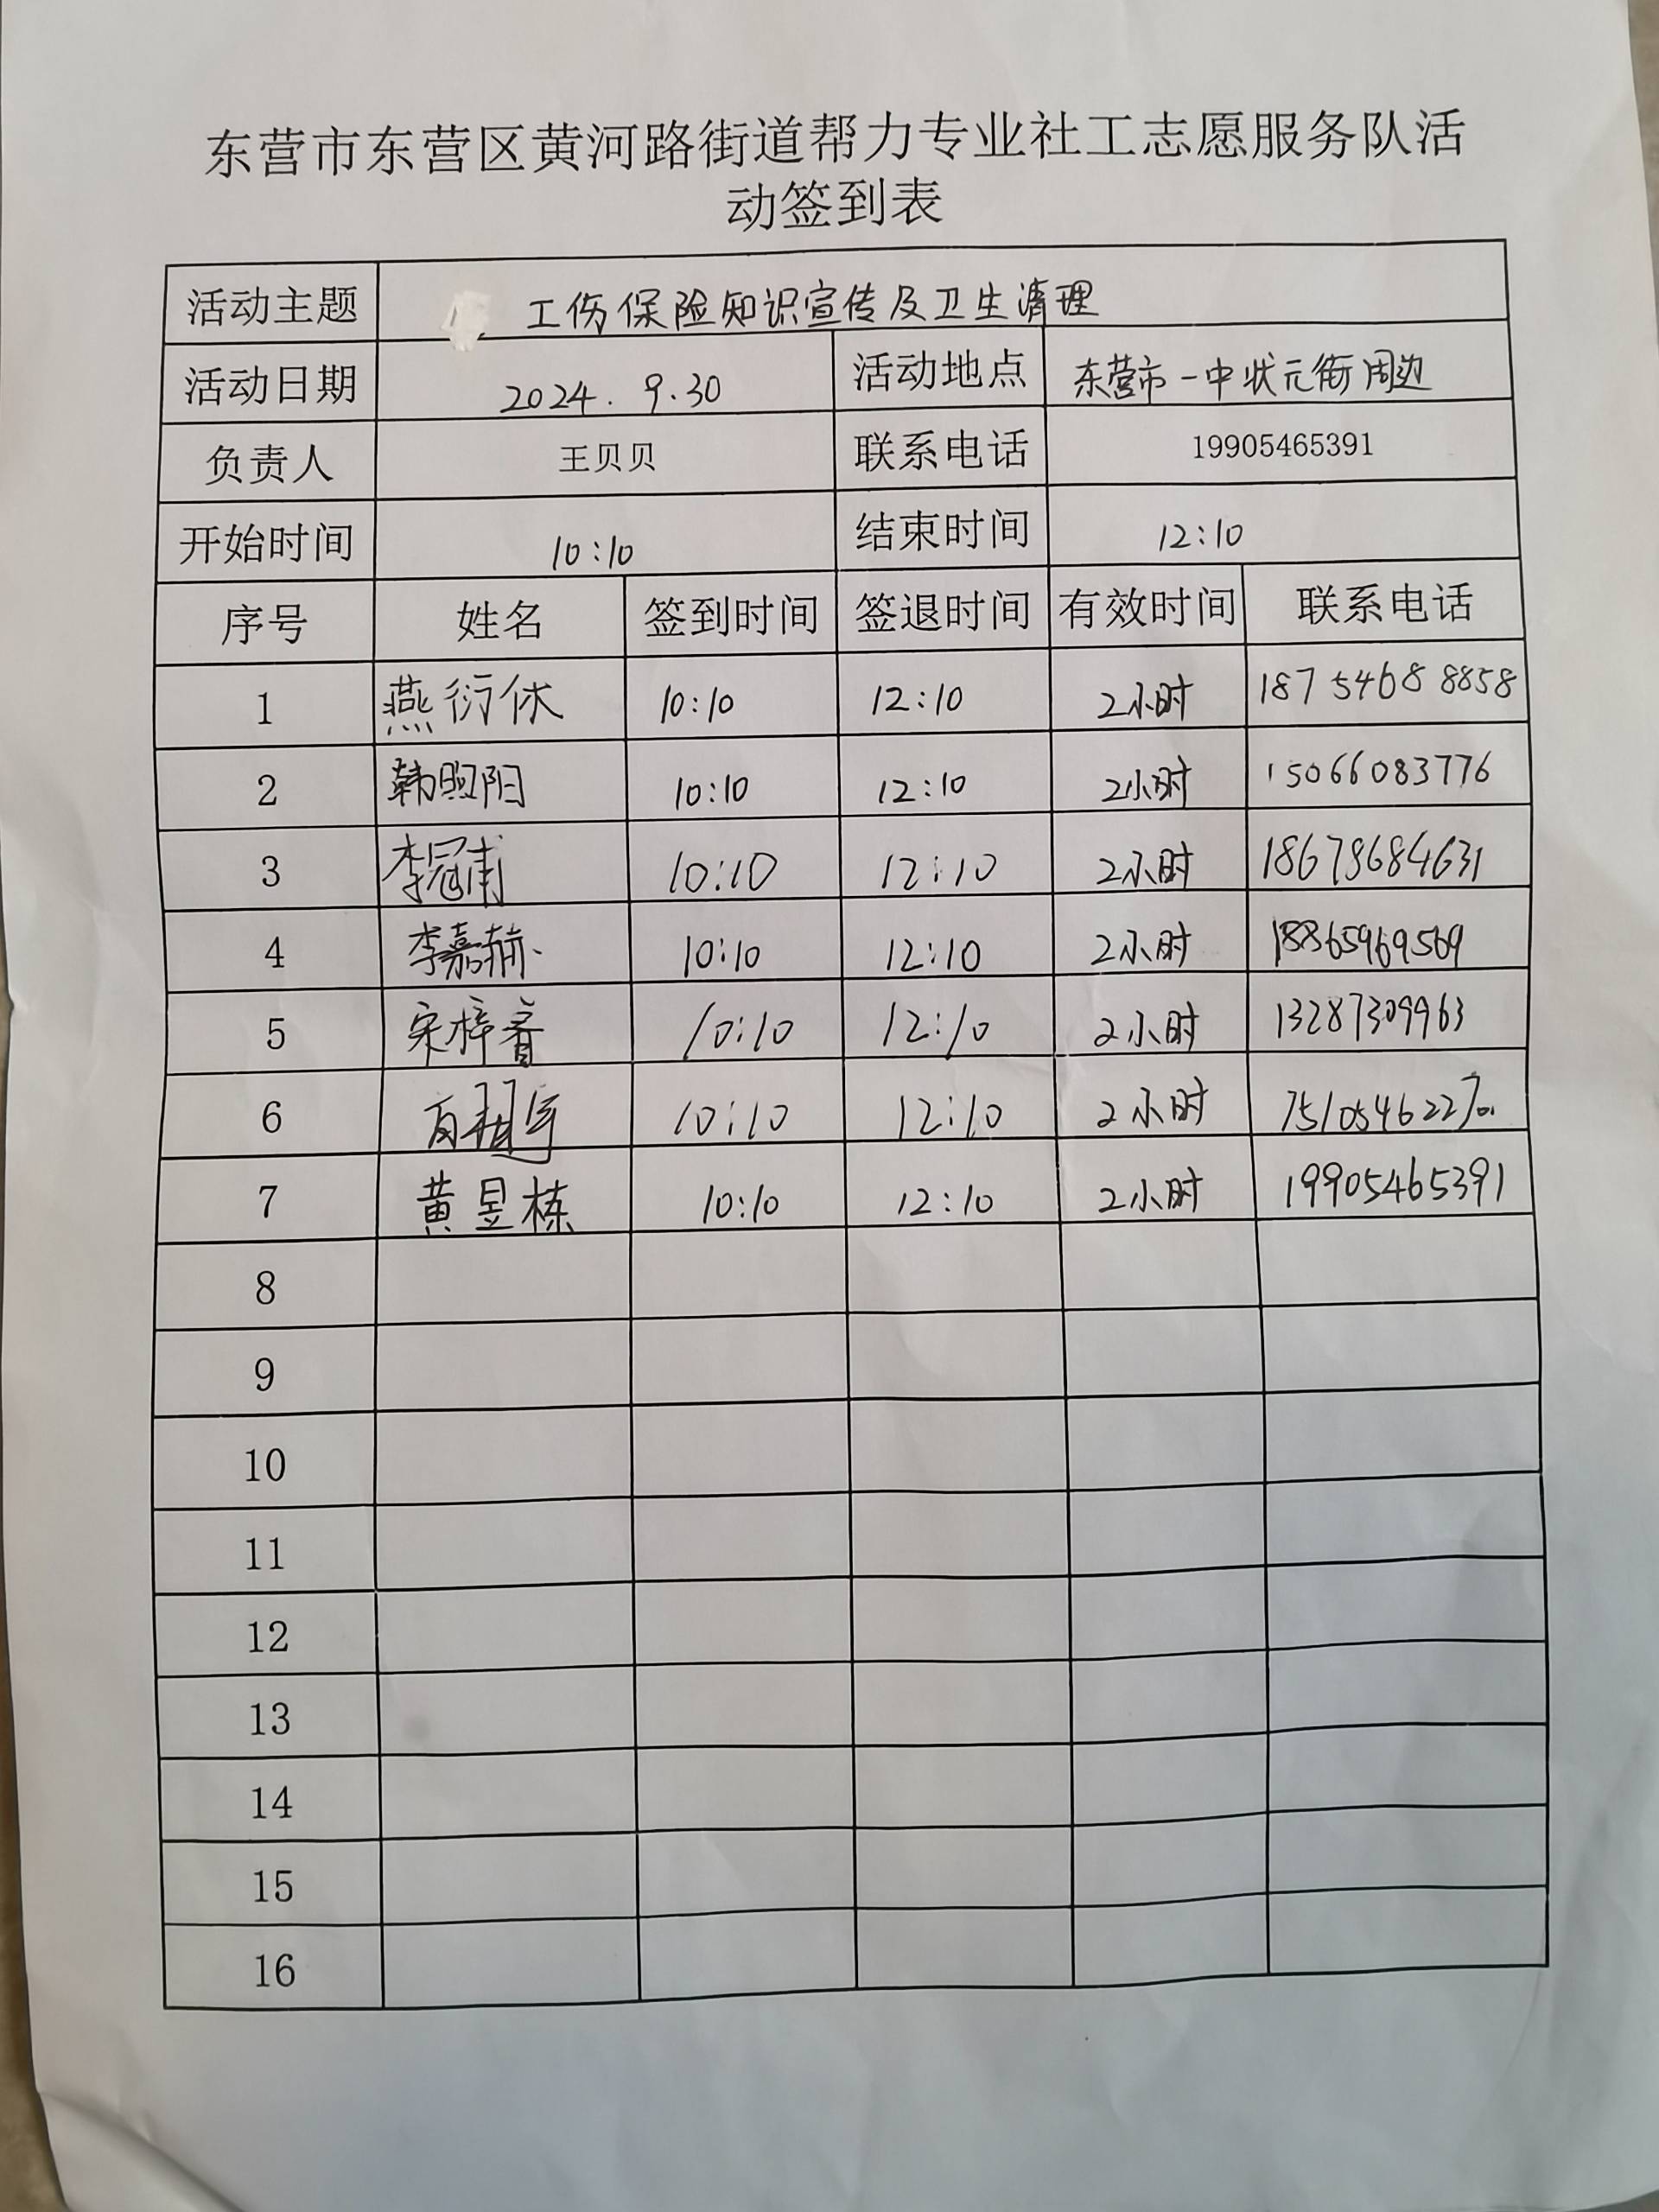 东营市东营区黄河路街道帮力专业社工志愿服务队活
动签到表
活动主题 工伤保险知识宣传及卫生清理
活动日期 2024.9.30 活动地点 东营市一中状元街周边
负责人 王贝贝 联系电话 19905465391
开始时间 10:10 结束时间 12:10
序号 姓名 签到时间 签退时间 有效时间 联系电话
1 燕衍休 10:10 12:10 2小时 18754688858
2 韩煦阳 10:10 12:10 2小时 15066083776
3 李冠甫 10:10 12:10 2小时 18678684631
4 李嘉 10:10 12:10 2小时 18865969569
5 宋梓睿 10:10 12:10 2小时 13287309963
6 10:10 12:10 2小时
7 黄昱栋 10:10 12:10 2小时 19905465391
8
9
10
11
12
13
14
15
16